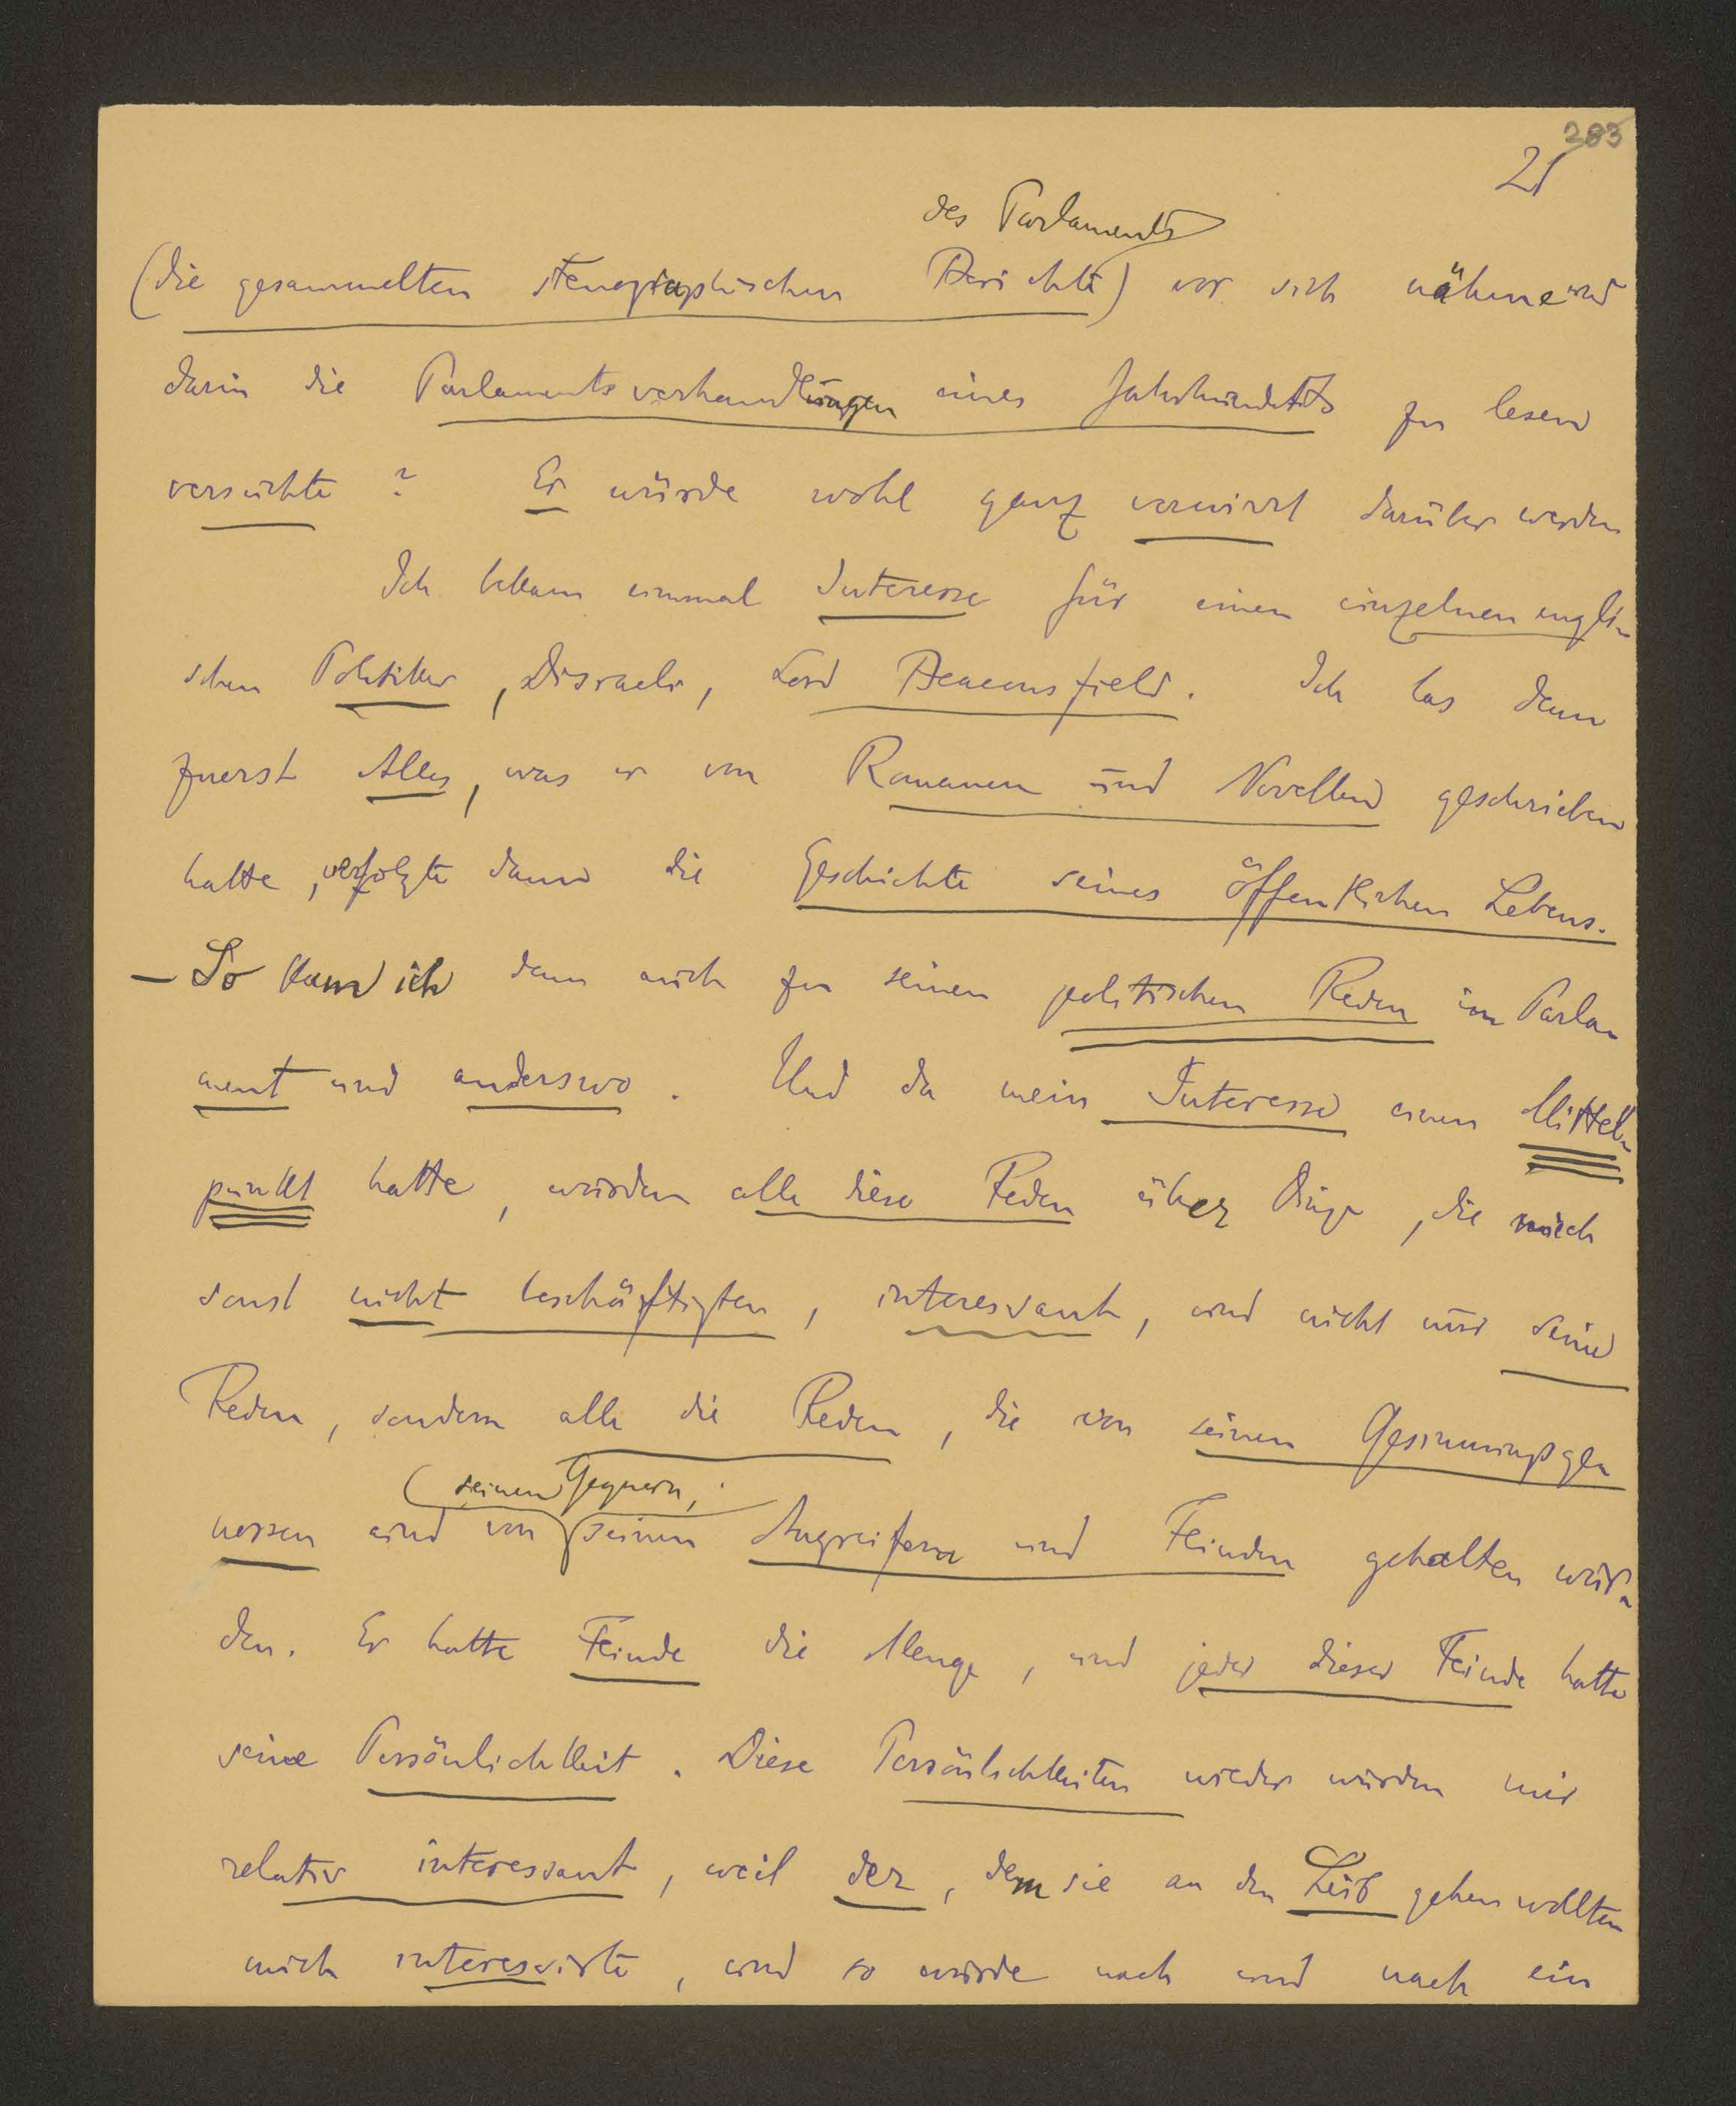 283
21
des Parlaments
(die gesammelten stenographischen Berichte) vor sich nähme und
darin die Parlamentsverhandlungen eines Jahrhunderts zu lesen
versuchte? Er würde wohl ganz verwirrt darüber werden
Ich bekam einmal Interesse für einen einzelnen engli-
schen Politiker, Disraeli, Lord Beaconsfield. Ich las denn
zuerst Alles, was er von Romanen und Novellen geschrieben
hatte, verfolgte dann die Geschichte seines öffentlichen Lebens.
– So kam ich dann auch zu seinen politischen Reden im Parla-
ment und anderswo. Und da mein Interesse einen Mittel-
punkt hatte, wurden alle diese Reden über Dinge, die mich
sonst nicht beschäftigten, interessant, und nicht nur seine
Reden, sondern alle die Reden, die von seinen Gesinnungsge-
(seinen Gegnern,
nossen und von seinen Angreifern und Feinden gehalten wur-
den. Er hatte Feinde die Menge, und jeder dieser Feinde hatte
seine Persönlichkeit. Diese Persönlichkeiten wieder wurden mir
relativ interessant, weil der, dem sie an den Leib gehen wollten
mich interessirte, und so wurde nach und nach ein